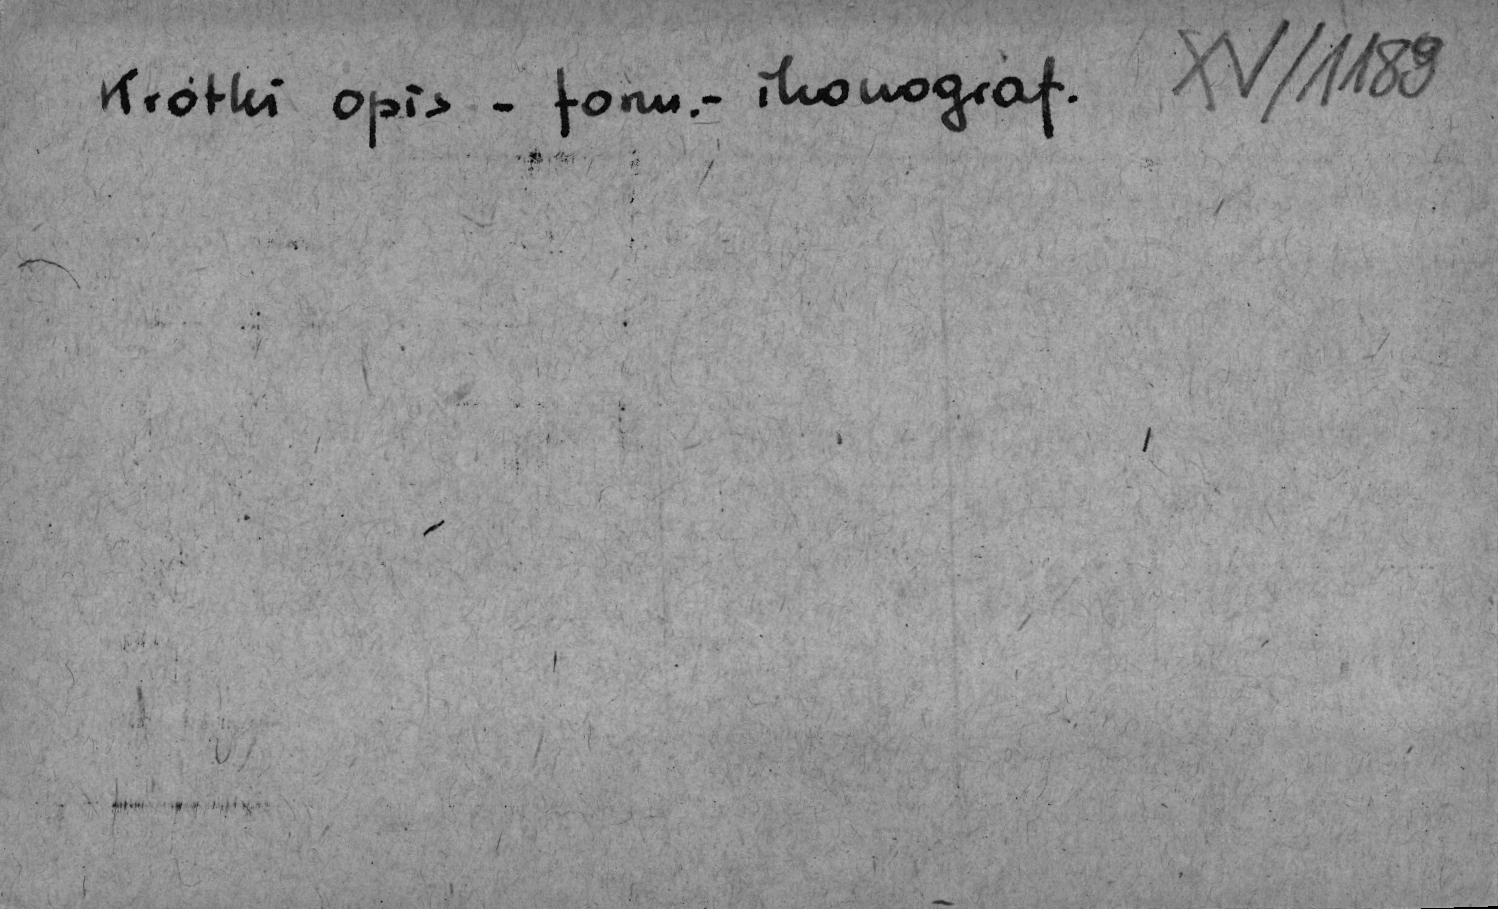 Krótki opis - form.- ikonograf.
XV/1189